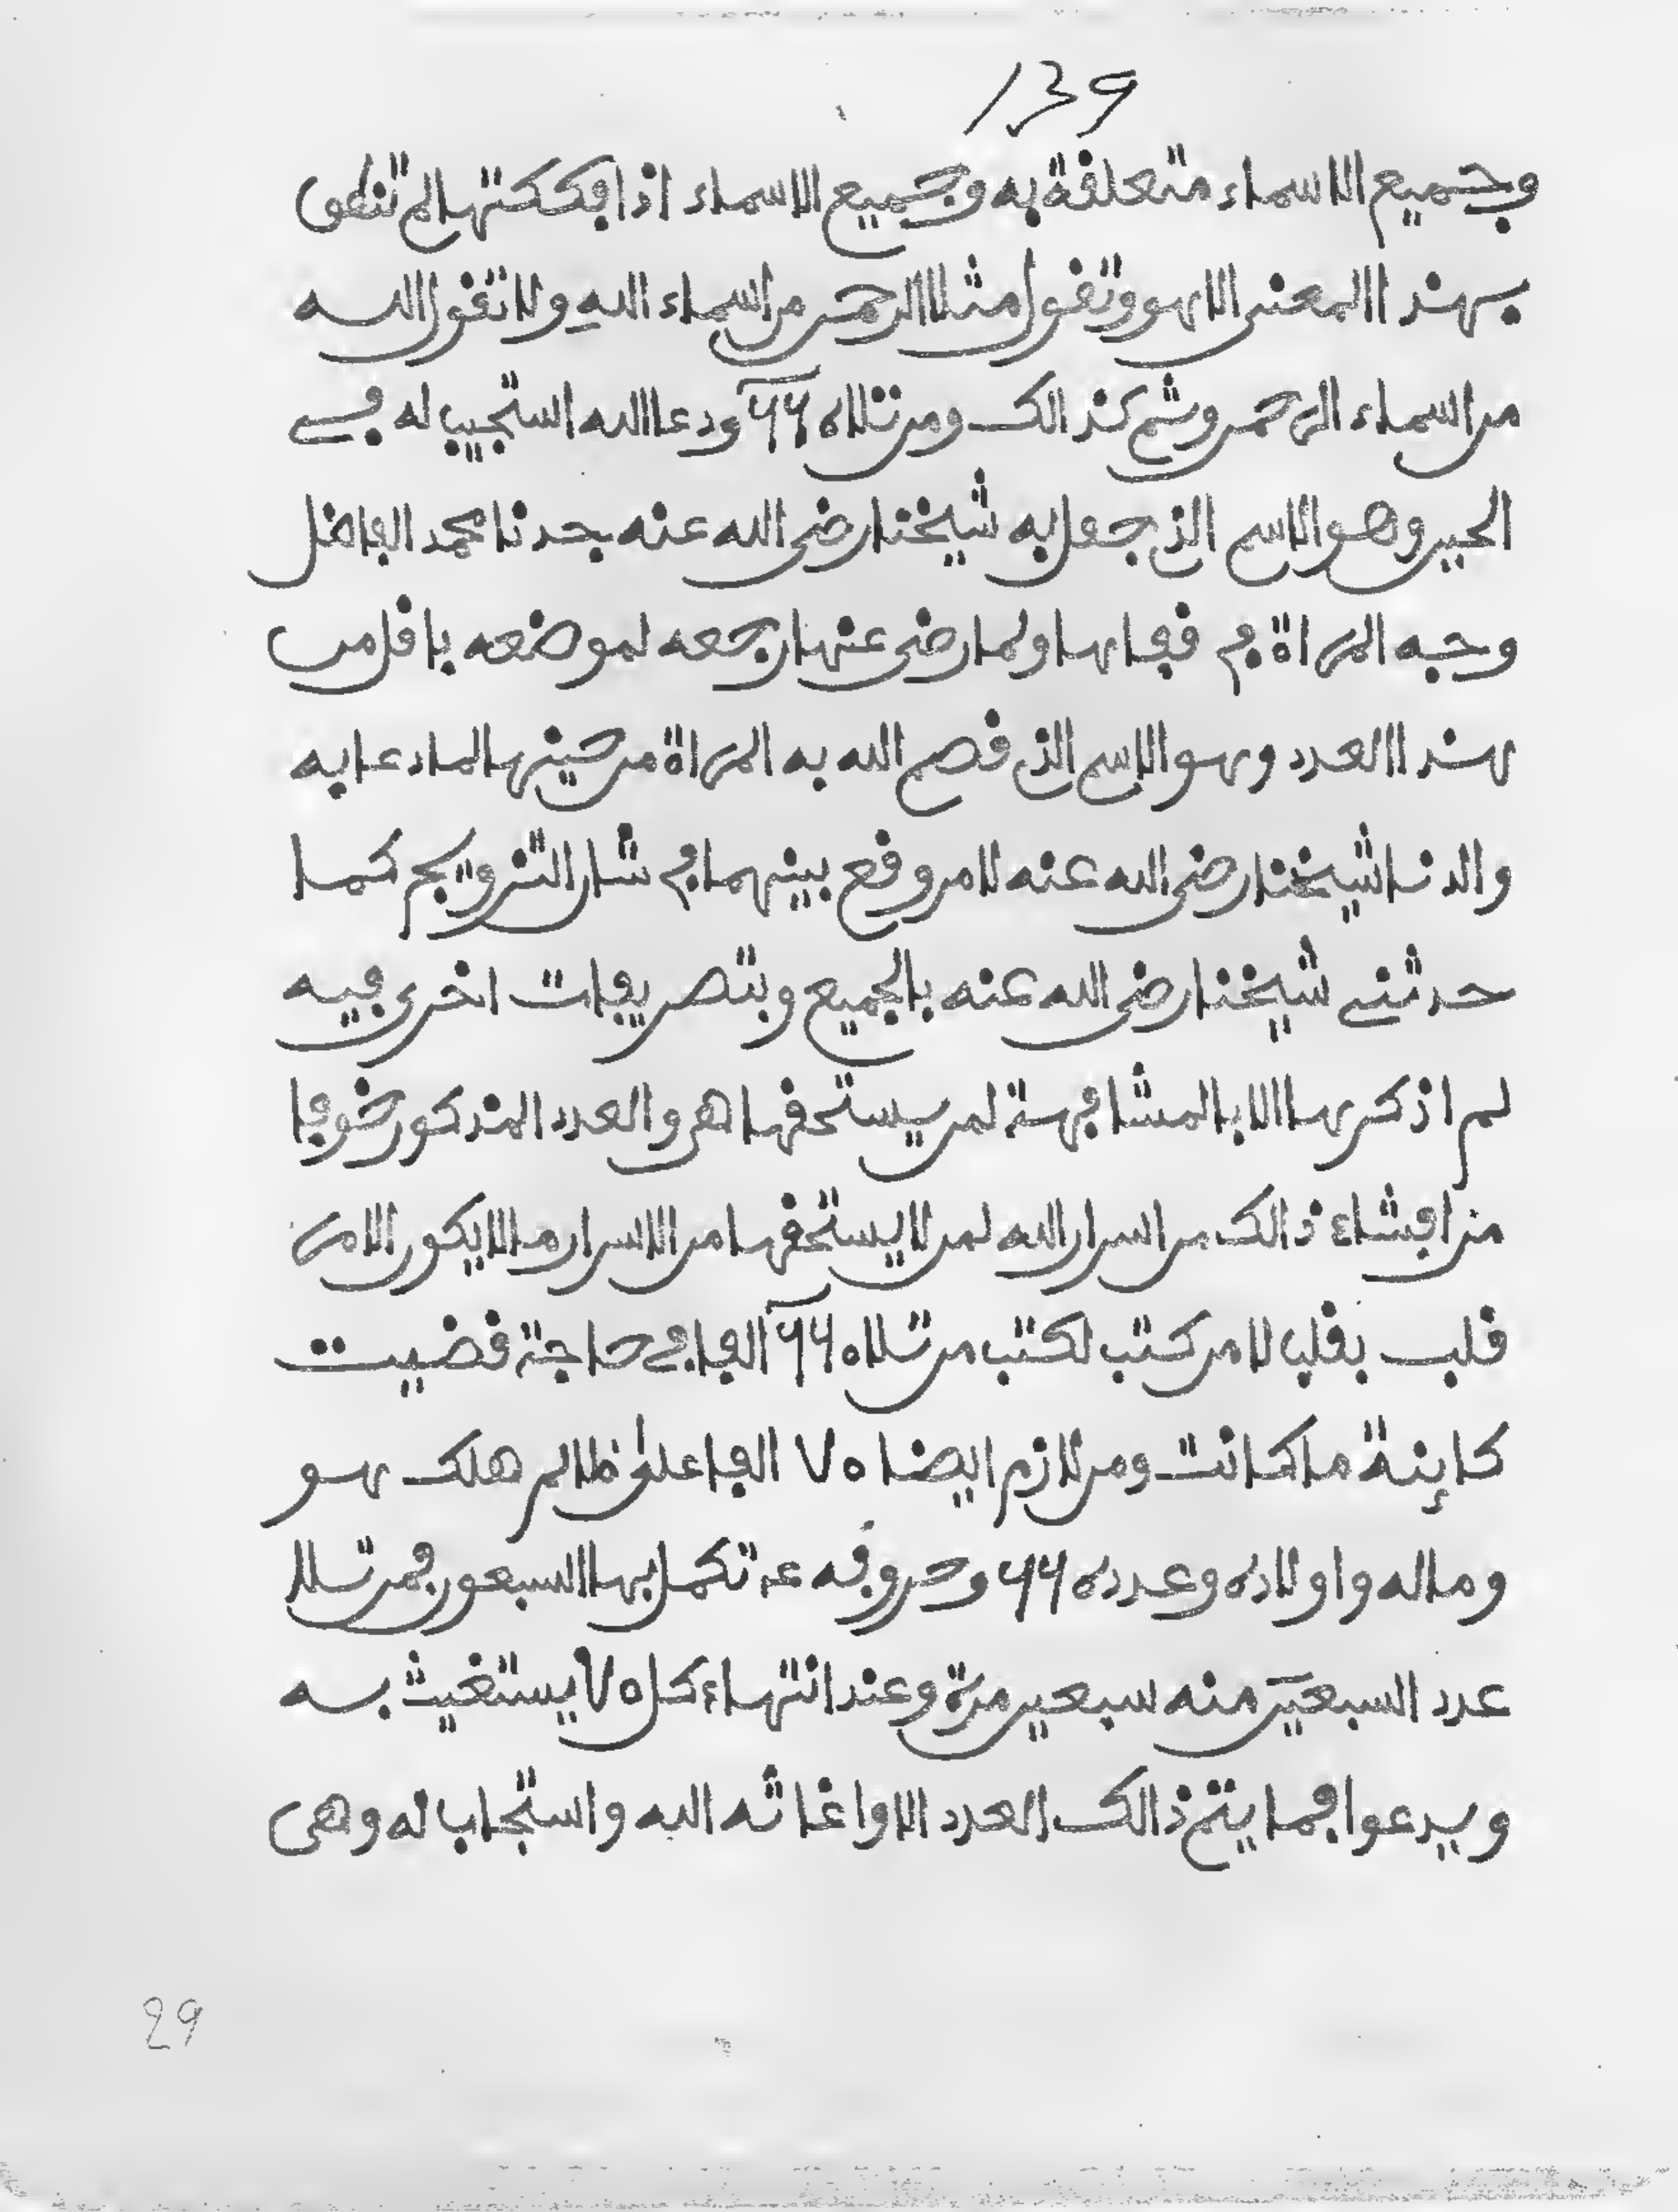 139
وجميع الاسماء متعلقة به وجميع الاسماء اذا فككتها لم تنطق
بهذا المعنى الا هو وتقول مثلا الرحمن من اسماء الله ولا تقول الله
من اسماء الرحمن وشم كذالك ومن تلاه ٦٦ ودعا الله استجيب له في
الحين وهو الاسم الذي جعل به شيخنا رضي الله عنه جدنا محمد الفاضل
وجه المرأة في قفاها ولما رضي عنها رجعه لموضعه باقل من
هذا العدد وهو الاسم الذي قصم الله به المرأة من حينها لما دعا به
والدنا شيخنا رضي الله عنه لامر وقع بينهما في شأن التزويج كما
حدثني شيخنا رضي الله عنه بالجميع وبتصريفات اخرى فيه
لم اذكرها الا بالمشافهة لمن يستحقها اهـ والعدد المذكور خوفا
من افشاء ذالك من اسرار الله لمن لا يستحقها من الاسرار ما لا يكون الا من
قلب بقلب لا من كتب لكتب من تلاه ٦٦ الفا في حاجة قضيت
كاينة ما كانت ومن لازم ايضا ٧٠ الفا على ظالم هلك هو
وماله واولاده وعدده ٦٦ وحروفه عـ تكمل بها السبعون فمن تلا
عدد السبعين منه سبعين مرة وعند انتهاء كل ٧٠ يستغيث به
ويدعوا فما يتم ذالك العدد الا واغاثه الله واستجاب له وهي
29